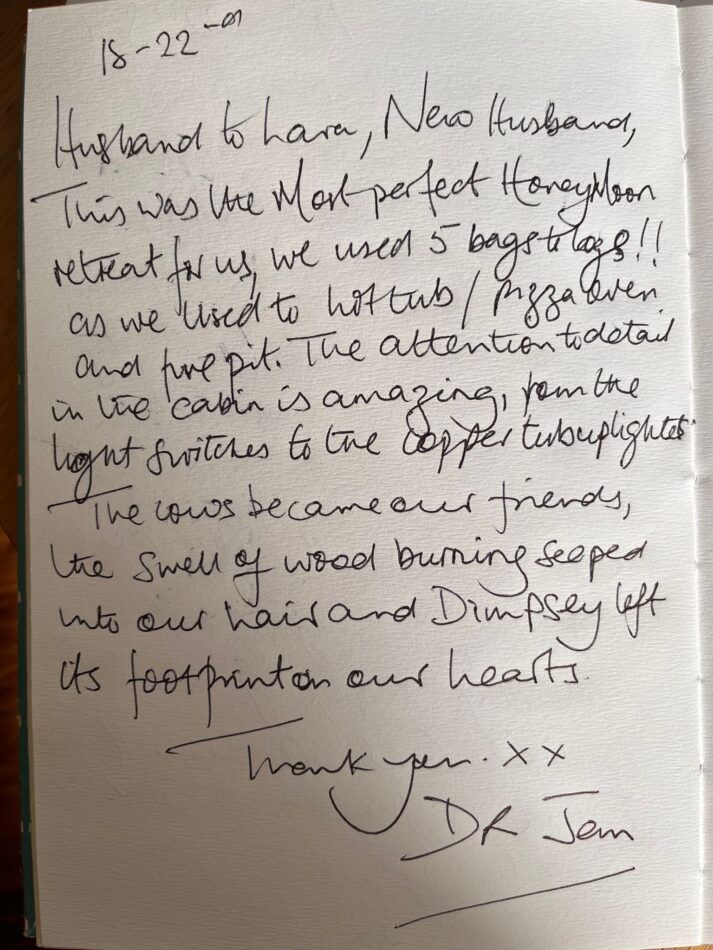 18-22-01
Husband to Lara, New Husband,
This was the Most perfect HoneyMoon
retreat for us, we used 5 bags logs!!
as we used to hot tub / pizza oven
and fire pit. The attention to detail
in the cabin is amazing, from the
light switches to the copper tube uplighter
The cows became our friends,
the smell of wood burning seeped
into our hair and Dimpsey left
its footprint on our hearts.
Thank you. xx
DR Jam